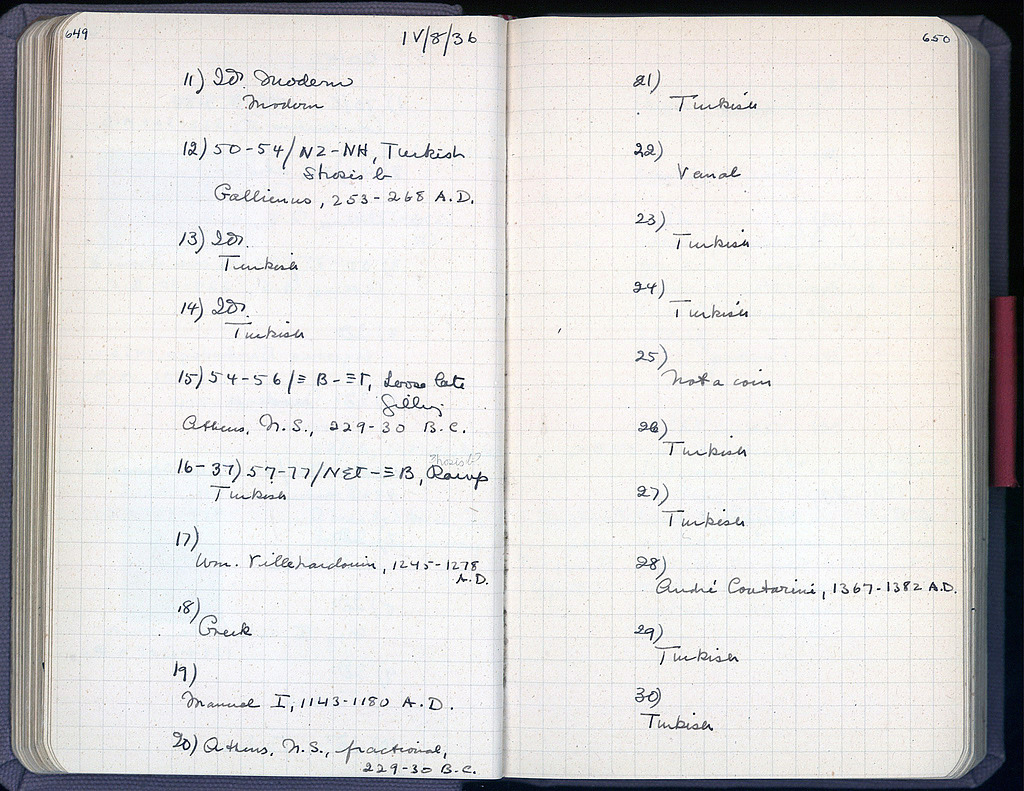 649
IV/8/36
11) Id. Modern
Modern
12) 50-54/NZ-NH, Turkish
Strosis b
Gallienus, 253-268 A.D.
13) Id.
Turkish
14) Id.
Turkish
15) 54-56/≡B-≡Γ, Loose late
filling
Athens, N.S., 229-30 B.C.
Strosis b?
16-37) 57-77/ -≡B, Ramp
Turkish
17)
Wm. Villehardouin, 1245-1278
A.D.
18)
Greek
19)
Manuel I, 1143-1180 A.D.
20) Athens, N.S., fractional,
229-30 B.C.
650
21)
Turkish
22)
Venal
23)
Turkish
24)
Turkish
25)
Not a coin
26)
Turkish
27)
Turkish
28)
André Contarini, 1367-1382 A.D.
29)
Turkish
30)
Turkish